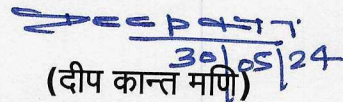 30/05/24
(दीप कान्त मणि)